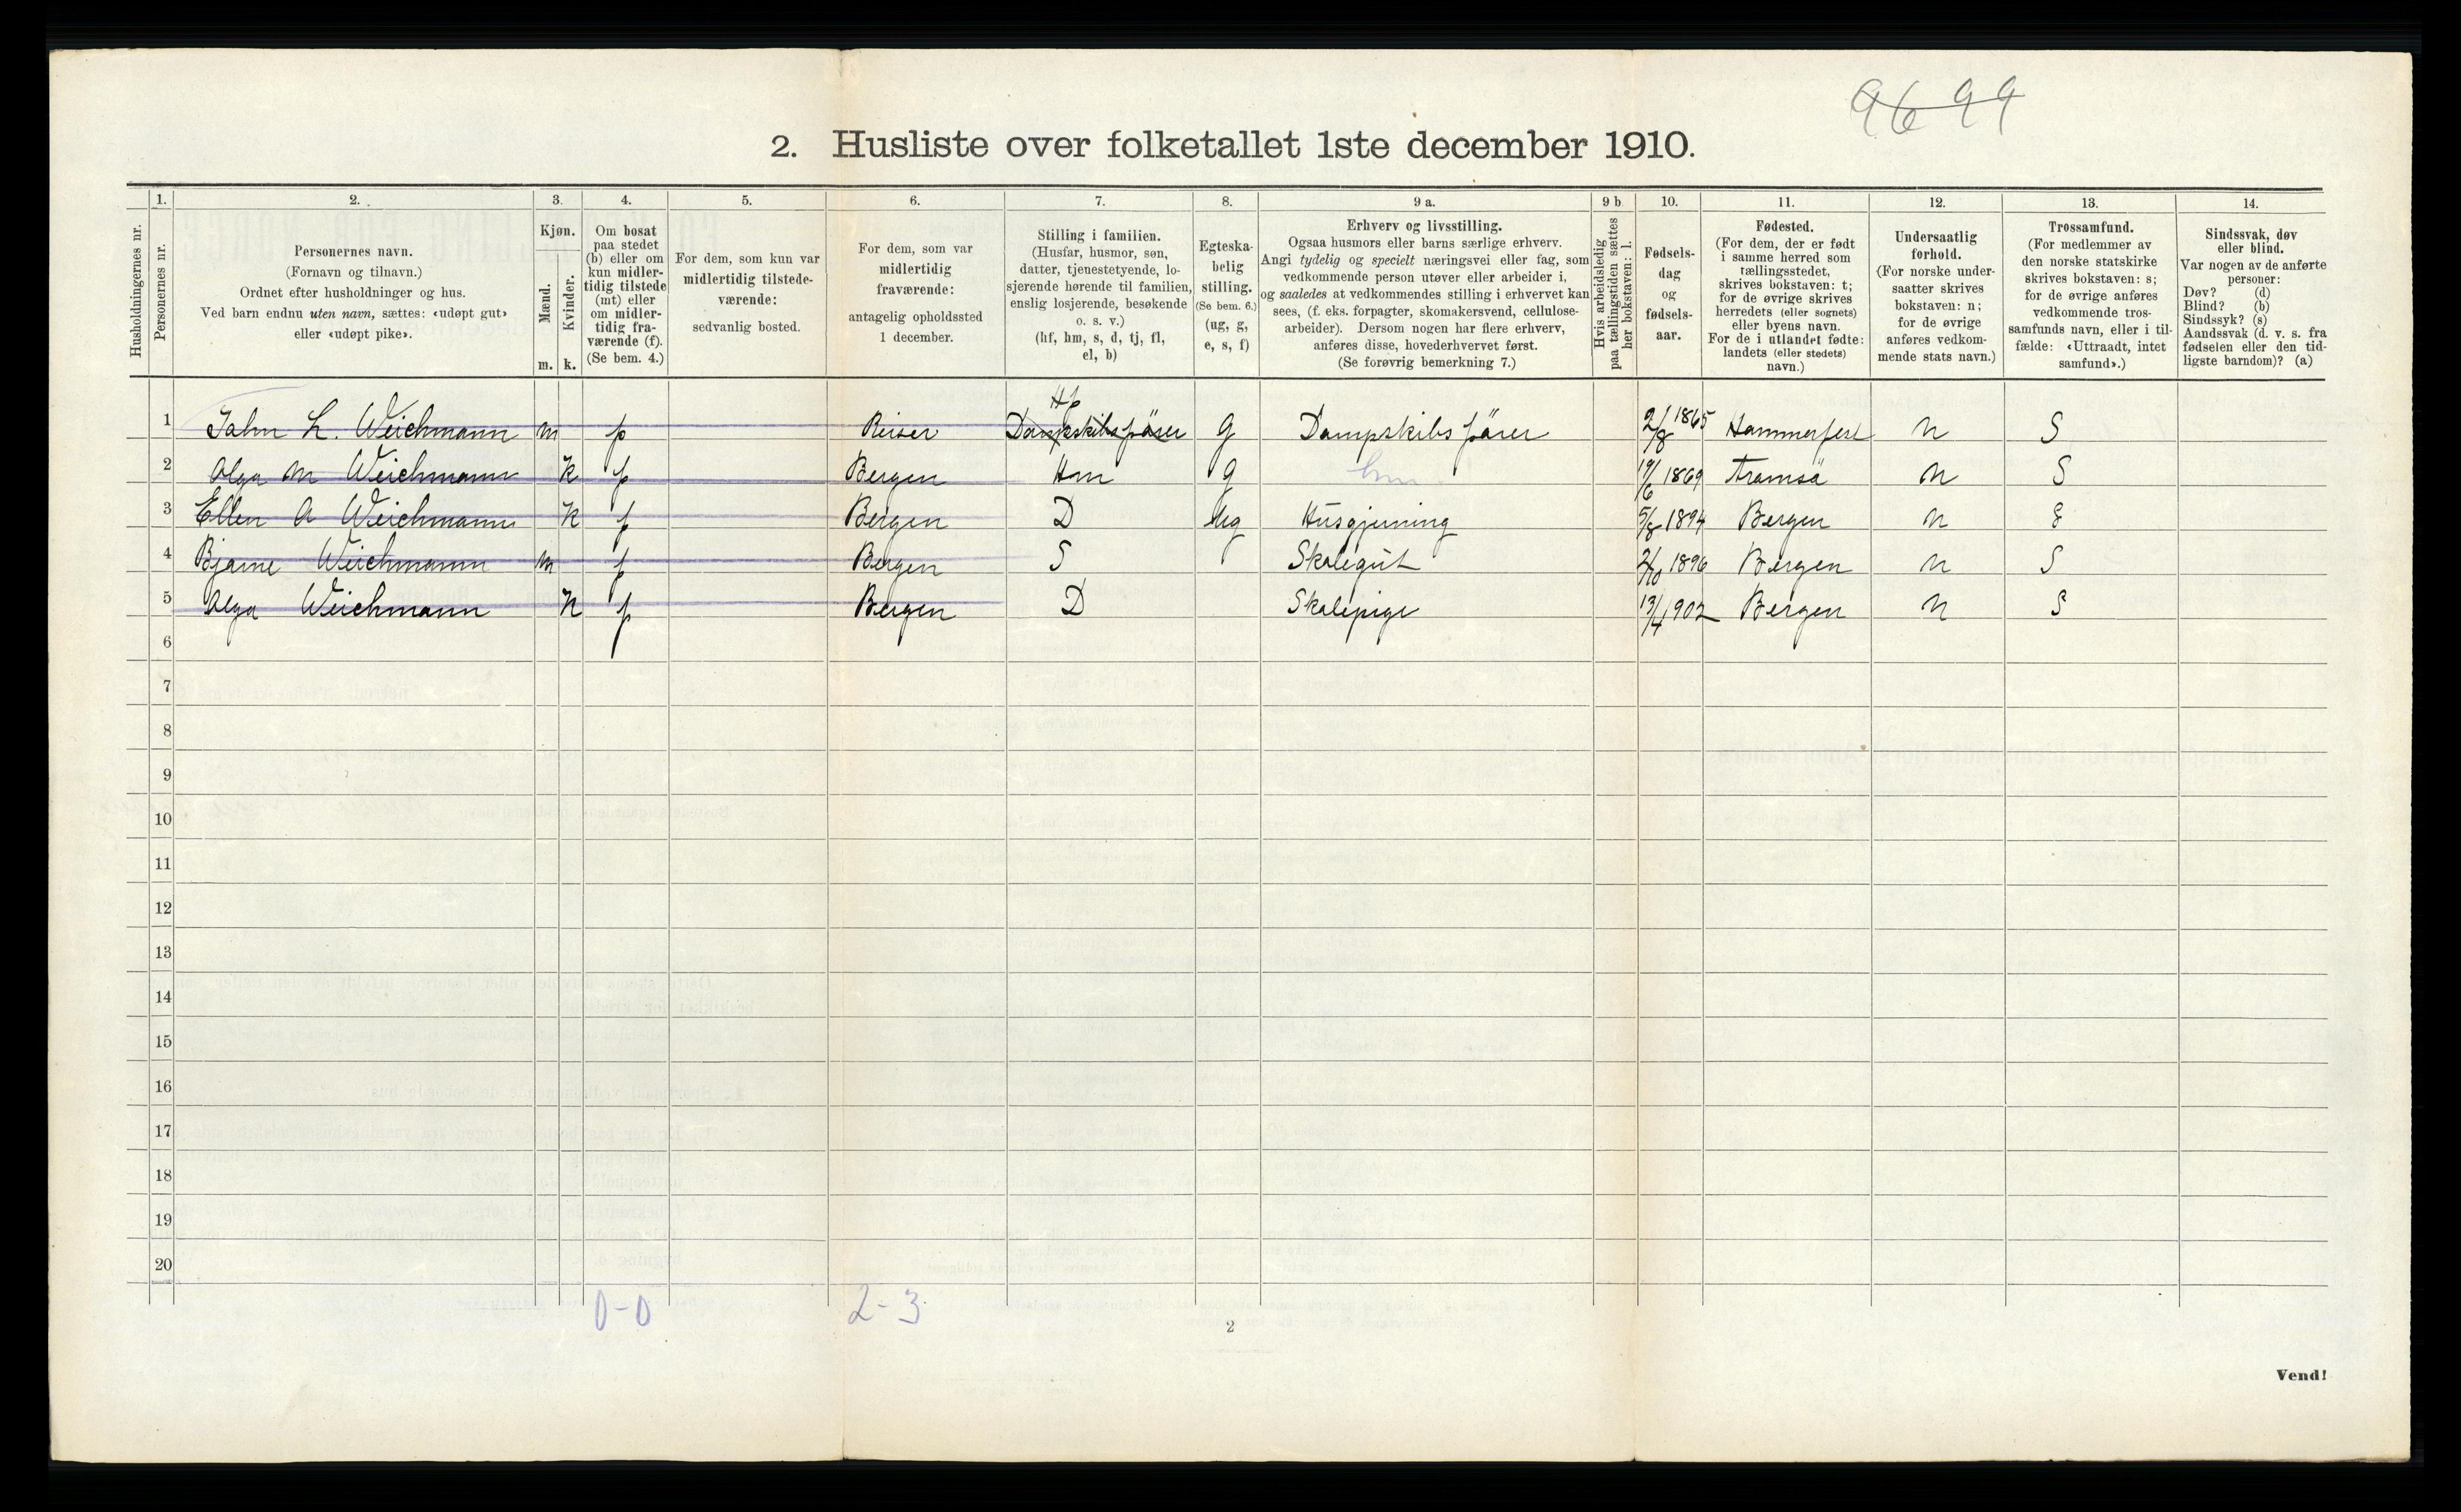 9699
2. Husliste over folketallet 1ste december 1910.
Husholdningernes nr.
1.
Personernes nr.
2.
Personernes navn.
(Fornavn og tilnavn.)
Ordnet efter husholdninger og hus.
Ved barn endnu uten navn, sættes: «udøpt gut»
eller «udøpt pike».
3.
Kjøn.
Mænd.
m.
Kvinder.
k.
4.
Om bosat
paa stedet
(b) eller om
kun midler-
tidig tilstede
(mt) eller
om midler-
tidig fra-
værende (f).
(Se bem. 4.)
5.
For dem, som kun var
midlertidig tilstede-
værende:
sedvanlig bosted.
6.
For dem, som var
midlertidig
fraværende:
antagelig opholdssted
1 december.
7.
Stilling i familien.
(Husfar, husmor, søn,
datter, tjenestetyende, lo-
sjerende hørende til familien,
enslig losjerende, besøkende
o. s. v.)
(hf, hm, s, d, tj, fl,
el, b)
8.
Egteska-
belig
stilling.
(Se bem. 6.)
(ug, g,
e, s, f)
9 a.
Erhverv og livsstilling.
Ogsaa husmors eller barns særlige erhverv.
Angi tydelig og specielt næringsvei eller fag, som
vedkommende person utøver eller arbeider i,
og saaledes at vedkommendes stilling i erhvervet kan
sees, (f. eks. forpagter, skomakersvend, cellulose-
arbeider). Dersom nogen har flere erhverv,
anføres disse, hovederhvervet først.
(Se forøvrig bemerkning 7.)
9 b
Hvis arbeidsledig
paa tællingstiden sættes
her bokstaven: l.
10.
Fødsels-
dag
og
fødsels-
aar.
11.
Fødested.
(For dem, der er født
i samme herred som
tællingsstedet,
skrives bokstaven: t;
for de øvrige skrives
herredets (eller sognets)
eller byens navn.
For de i utlandet fødte:
landets (eller stedets)
navn.)
12.
Undersaatlig
forhold.
(For norske under-
saatter skrives
bokstaven: n;
for de øvrige
anføres vedkom-
mende stats navn.)
13.
Trossamfund.
(For medlemmer av
den norske statskirke
skrives bokstaven: s;
for de øvrige anføres
vedkommende tros-
samfunds navn, eller i til-
fælde: «Uttraadt, intet
samfund».)
14.
Sindssvak, døv
eller blind.
Var nogen av de anførte
personer:
Døv? (d)
Blind? (b)
Sindssyk? (s)
Aandssvak (d. v. s. fra
fødselen eller den tid-
ligste barndom)? (a)
Hf
1 John L. Weichmann m f Reiser Dampskibsfører g Dampskibsfører 2/8 1865 Hammerfest n S
2 Olga M Weichmann k f Bergen Hm g hm 19/6 1869 Tromsø n S
3 Ellen A Weichmann k f Bergen D ug Husgjerning 5/8 1894 Bergen n S
4 Bjarne Weichmann m f Bergen S Skolegut 2/10 1896 Bergen n S
5 Olga Weichmann k f Bergen D Skolepige 13/4 1902 Bergen n S
6
7
8
9
10
11
12
13
14
15
16
17
18
19
20
0-0 2-3
2
Vend!